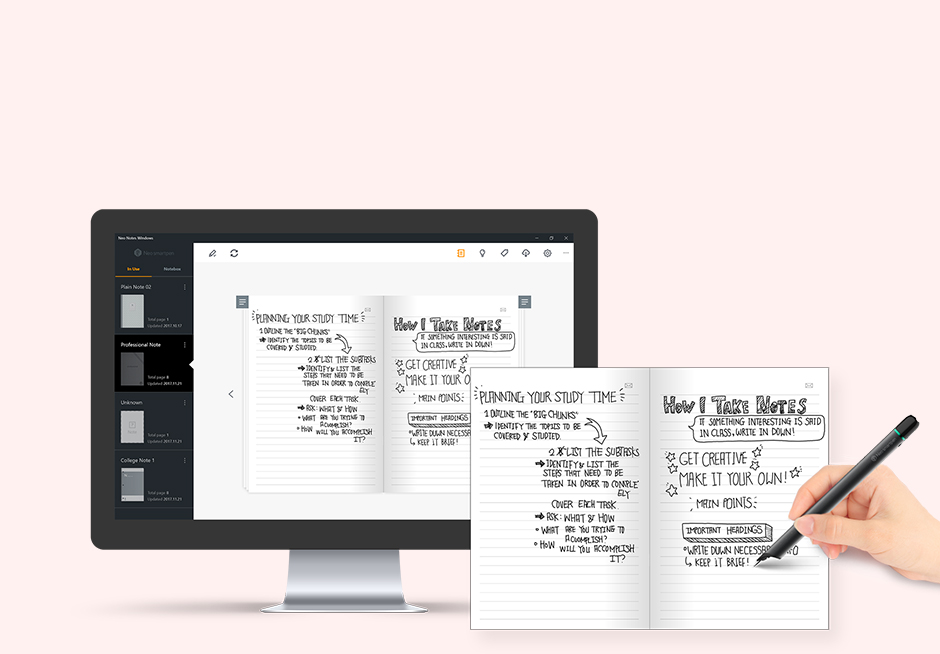 Neo Notes Windows
In Use
Notebox
Plain Note 02
Total page 1
Updated 2017.10.17
Professional Note
Total page 8
Updated 2017.11.21
Unknown
Total page 1
Updated 2017.11.21
College Note 1
Total page 8
Updated 2017.11.21
PLANNING YOUR STUDY TIME
1 OUTLINE THE "BIG CHUNKS"
IDENTIFY THE TOPICS TO BE
COVERED & STUDIED.
2 LIST THE SUBTASKS
IDENTIFY & LIST THE
STEPS THAT NEED TO BE
TAKEN IN ORDER TO COMPLE
ELY
COVER EACH TASK
ASK: WHAT & HOW
WHAT ARE YOU TRYING TO
ACCOMPLISH?
HOW WILL YOU ACCOMPLISH
IT?
HOW I TAKE NOTES
IF SOMETHING INTERESTING IS SAID
IN CLASS, WRITE IN DOWN!
GET CREATIVE
MAKE IT YOUR O
MAIN POINTS:
IMPORTANT HEADINGS
WRITE DOWN NECESS
KEEP IT BRIEF!
PLANNING YOUR STUDY TIME
1 OUTLINE THE "BIG CHUNKS"
IDENTIFY THE TOPICS TO BE
COVERED & STUDIED.
2 LIST THE SUBTASKS
IDENTIFY & LIST THE
STEPS THAT NEED TO BE
TAKEN IN ORDER TO COMPLE
ELY
COVER EACH TASK
ASK: WHAT & HOW
WHAT ARE YOU TRYING TO
ACCOMPLISH?
HOW WILL YOU ACCOMPLISH
IT?
HOW I TAKE NOTES
IF SOMETHING INTERESTING IS SAID
IN CLASS, WRITE IN DOWN!
GET CREATIVE
MAKE IT YOUR OWN!
MAIN POINTS:
IMPORTANT HEADINGS
WRITE DOWN NECESSA FO
KEEP IT BRIEF!